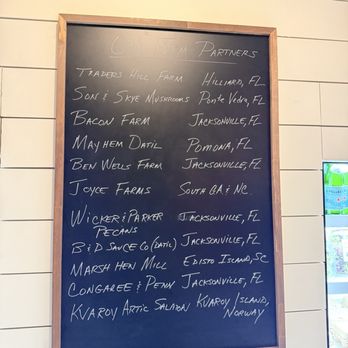 Our Farm Partners
Traders Hill Farm Hilliard, FL
Son & Skye Mushrooms Ponte Vedra, FL
Bacon Farm Jacksonville, FL
Mayhem Datil Pomona, FL
Ben Wells Farm Jacksonville, FL
Joyce Farms South GA & NC
Wicker & Parker Pecans Jacksonville, FL
B & D Sauce Co (Datil) Jacksonville, FL
Marsh Hen Mill Edisto Island, SC
Congaree & Penn Jacksonville, FL
Kvaroy Artic Salmon Kvaroy Island, Norway